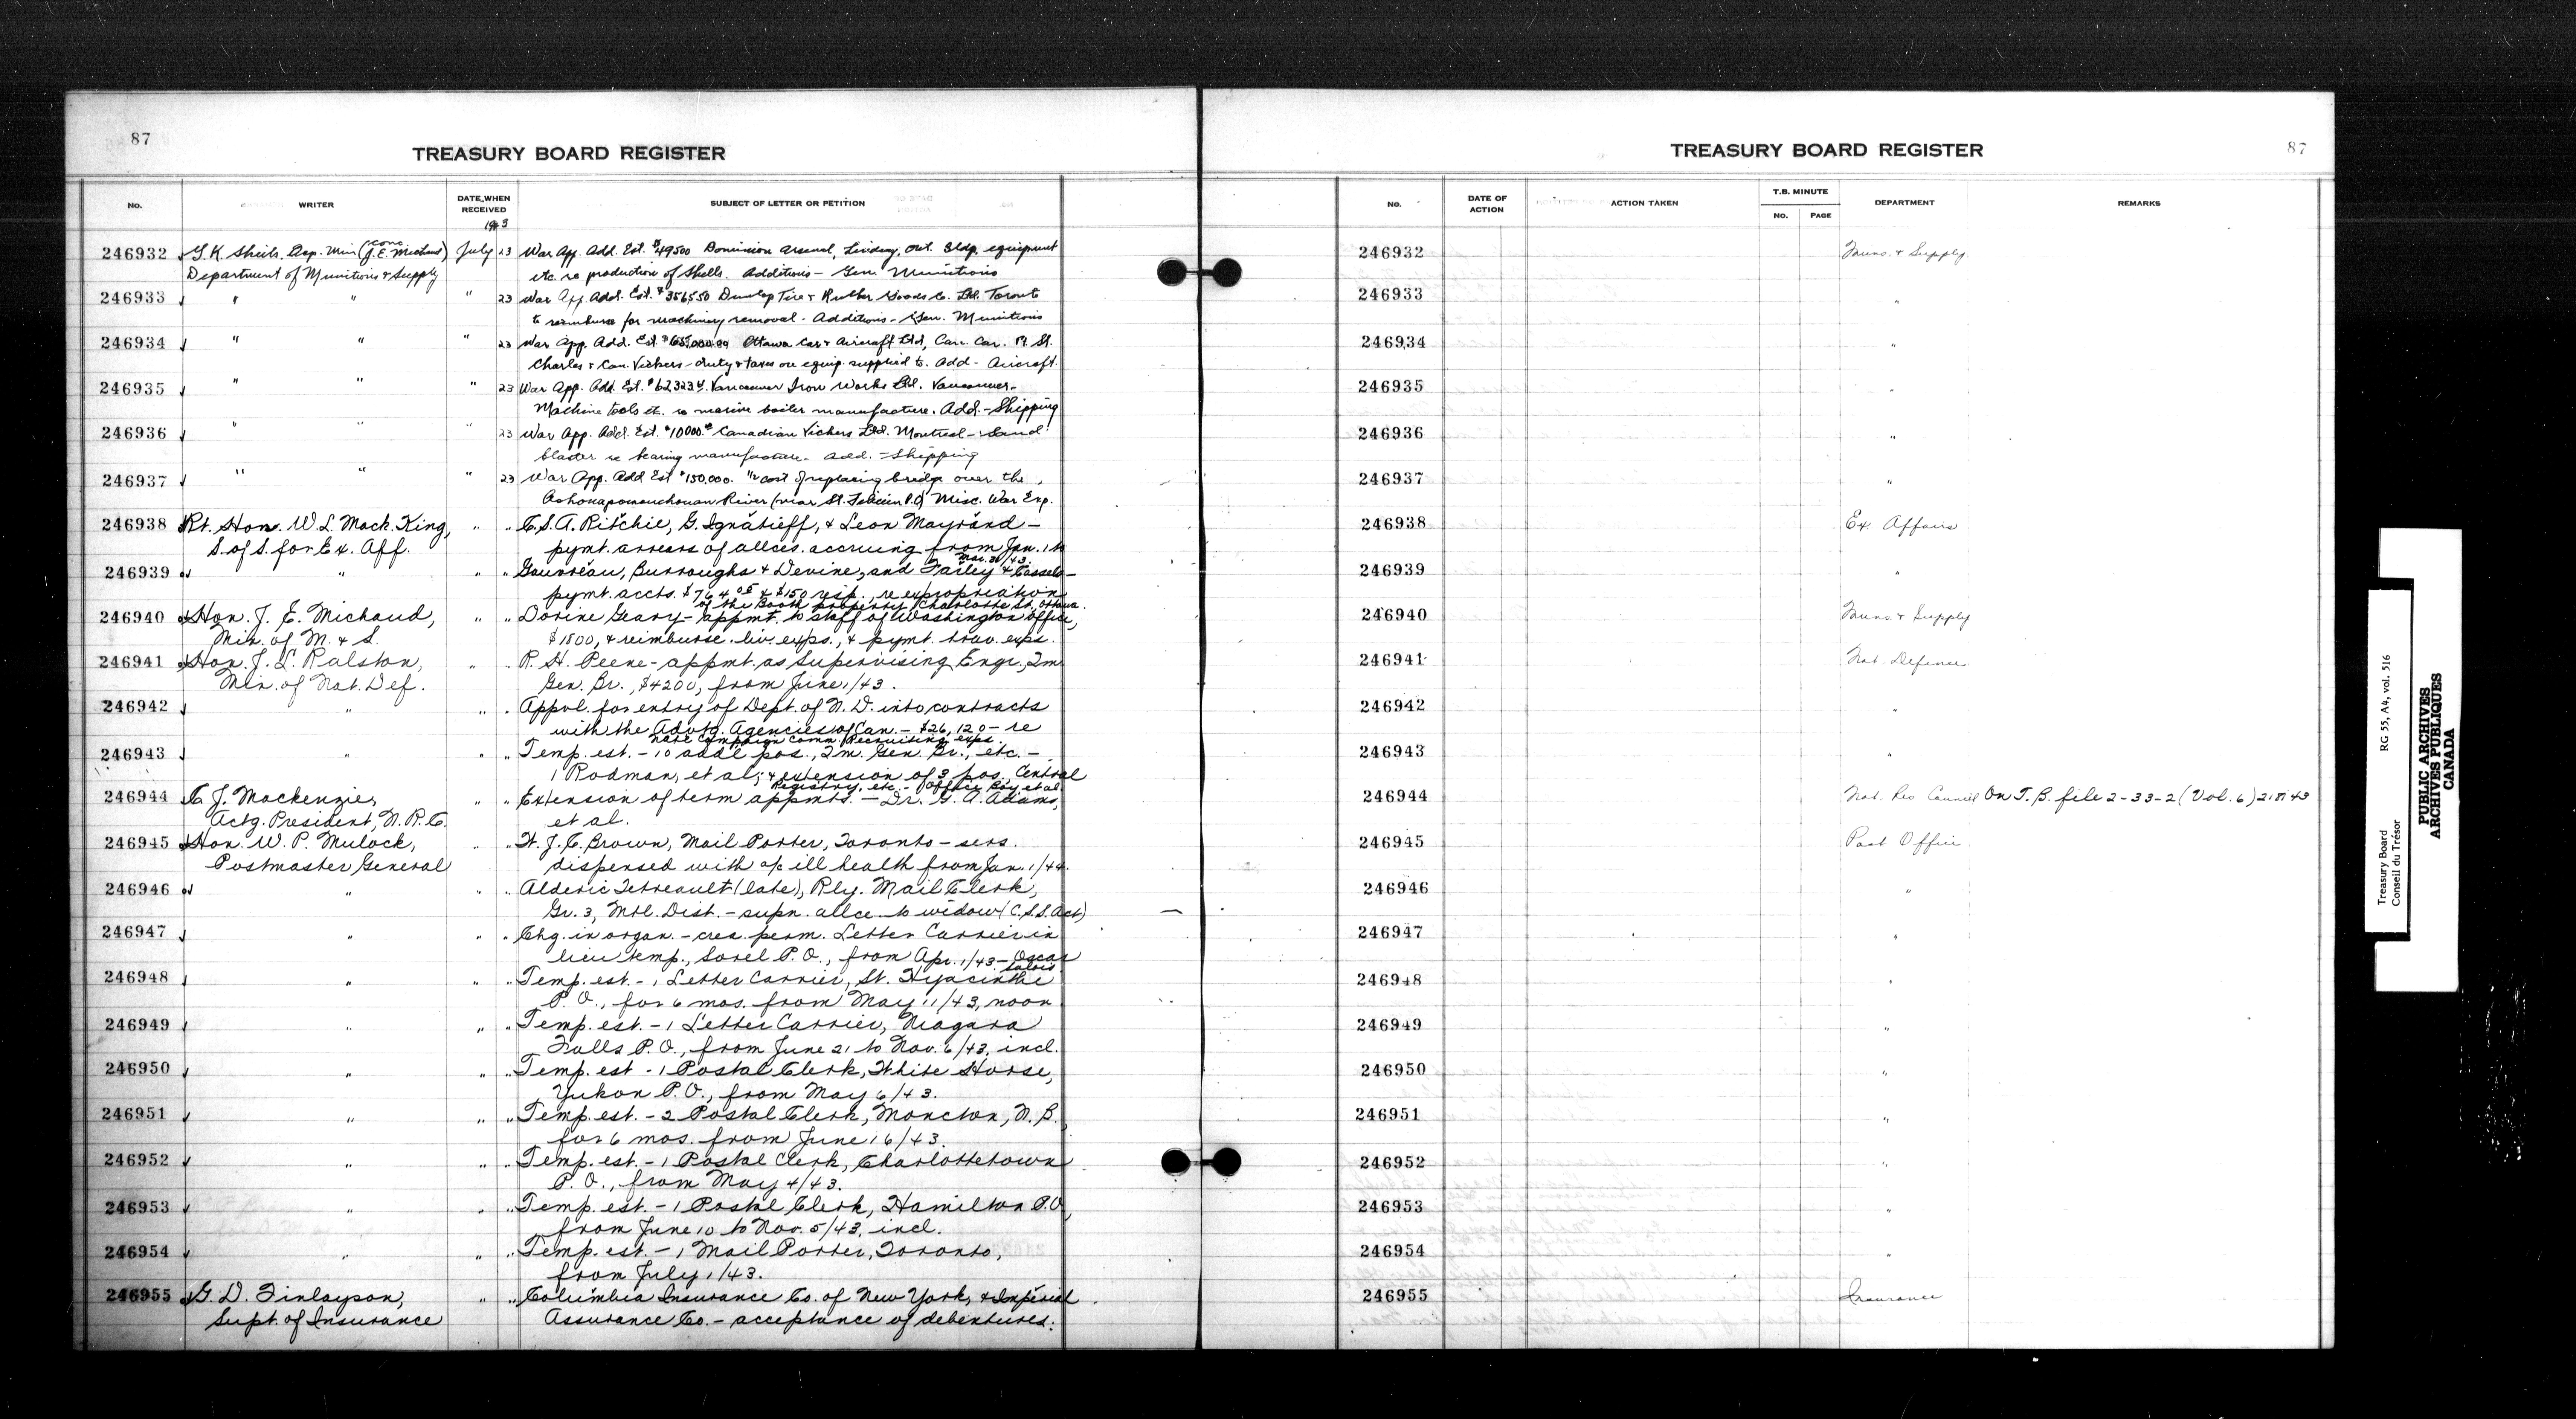 87
TREASURY BOARD REGISTER
No.
WRITER
DATE WHEN RECEIVED
SUBJECT OF LETTER OR PETITION
1943
246932 G.K. Sheils, Dep. Min. (conc J.E. Michaud) July 23 War App. Add. Est. $49500 Dominion Arsenal, Lindsay, Ont. Bldg. equipment
Department of Munitions & Supply etc. re production of Shells. Additions - Gen. Munitions
246933 " " " 23 War App. Add. Est. Dunlop Tire & Rubber Goods Co. Ltd. Toronto
to reimburse for machinery removal - Additions - Gen. Munitions
246934 " " " 23 War App. Add. Est. Ottawa Car & Aircraft Ltd, Can. Car. Pt. St.
Charles & Can. Vickers - duty & taxes on equip. supplied to. Add - Aircraft.
246935 " " " 23 War App. Add. Est. Vancouver Iron Works Ltd. Vancouver -
Machine tools etc. re marine boiler manufacture. Add. - Shipping
246936 " " " 23 War App. Add. Est. $10000. Canadian Vickers Ltd. Montreal - Sand
blaster re bearing manufacture - Add. - Shipping
246937 " " " 23 War App. Add Est $150,000. 1/2 cost of replacing bridge over the
River (near St. Felicien P.Q) Misc. War Exp.
246938 Rt. Hon. W.L. Mack. King, " " C.S.A. Ritchie, G. Ignatieff, & Leon Mayrand -
S. of S. for Ex. Aff. pymt. arrears of allces. accruing from Jan. 1 to
Mar. 31/43
246939 " " " Gauvreau, Burroughs & Devine, and Fairley & Cassels -
pymt. accts. $764.05 & $150 resp., re expropriation
of the Booth property, Charlotte St., Ottawa.
246940 Hon. J. E. Michaud, " " Dorine Geary - appmt. to staff of Washington office,
Min. of M. & S. $1800, & reimburse. liv. exps., & pymt. trav. exps.
246941 Hon. J. L. Ralston, " " R. H. Peene - appmt. as Supervising Engr., 2m.
Min. of Nat. Def. Gen. Br., $4200, from June 1/43.
246942 " " " Appvl. for entry of Dept. of N. D. into contracts
with the Advtg. Agencies of Can. - $26,120 - re
Natl Campaign Comm. Recruiting exps.
246943 " " " Temp. est. - 10 addl pos., 2m. Gen. Br., etc. -
1 Rodman, et al; & extension of 3 pos., Central
Registry, etc. - 1 Office Boy et al.
246944 C. J. Mackenzie, " " Extension of term appmts. - Dr. G. A. Adams,
Actg. President, N.R.C. et al.
246945 Hon. W. P. Mulock, " " H. J. C. Brown, Mail Porter, Toronto - sers.
Postmaster General dispensed with a/c ill health from Jan. 1/44.
246946 " " " Alderic Tetreault (late), Rly. Mail Clerk,
Gr. 3, Mtl. Dist. - supn. allce to widow (C.S.S. Act)
246947 " " " Chg. in organ. - cres. perm. Letter Carrier in
lieu temp., Sorel P.O., from Apr. 1/43 - Oscar
Salois
246948 " " " Temp. est. - 1 Letter Carrier, St. Hyacinthe
P. O., for 6 mos. from May 11/43, noon
246949 " " " Temp. est. - 1 Letter Carrier, Niagara
Falls P. O., from June 21 to Nov. 6/43, incl.
246950 " " " Temp. est - 1 Postal Clerk, White Horse,
Yukon P. O., from May 6/43.
246951 " " " Temp. est. - 2 Postal Clerk, Moncton, N. B.
for 6 mos. from June 16/43.
246952 " " " Temp. est. - 1 Postal Clerk, Charlottetown
P. O., from May 4/43.
246953 " " " Temp. est. - 1 Postal Clerk, Hamilton P.O,
from June 10 to Nov. 5/43, incl.
246954 " " " Temp. est. - 1 Mail Porter, Toronto,
from July 1/43.
246955 G. D. Finlayson, " " Columbia Insurance Co. of New York, & Imperial
Supt. of Insurance Assurance Co. - acceptance of debentures.
TREASURY BOARD REGISTER
87
No.
DATE OF ACTION
ACTION TAKEN
T.B. MINUTE
No. PAGE
DEPARTMENT
REMARKS
246932 Muns. & Supply
246933 "
246934 "
246935 "
246936 "
246937 "
246938 Ex. Affairs
246939 "
246940 Muns. & Supply
246941 Nat. Defence
246942 "
246943 "
246944 Nat. Res Council On T.B. file 2-33-2 (Vol. 6)
246945 Post Office
246946 "
246947 "
246948 "
246949 "
246950 "
246951 "
246952 "
246953 "
246954 "
246955 Insurance
Treasury Board
Conseil du Trésor
RG 55, A4, vol. 516
PUBLIC ARCHIVES
ARCHIVES PUBLIQUES
CANADA